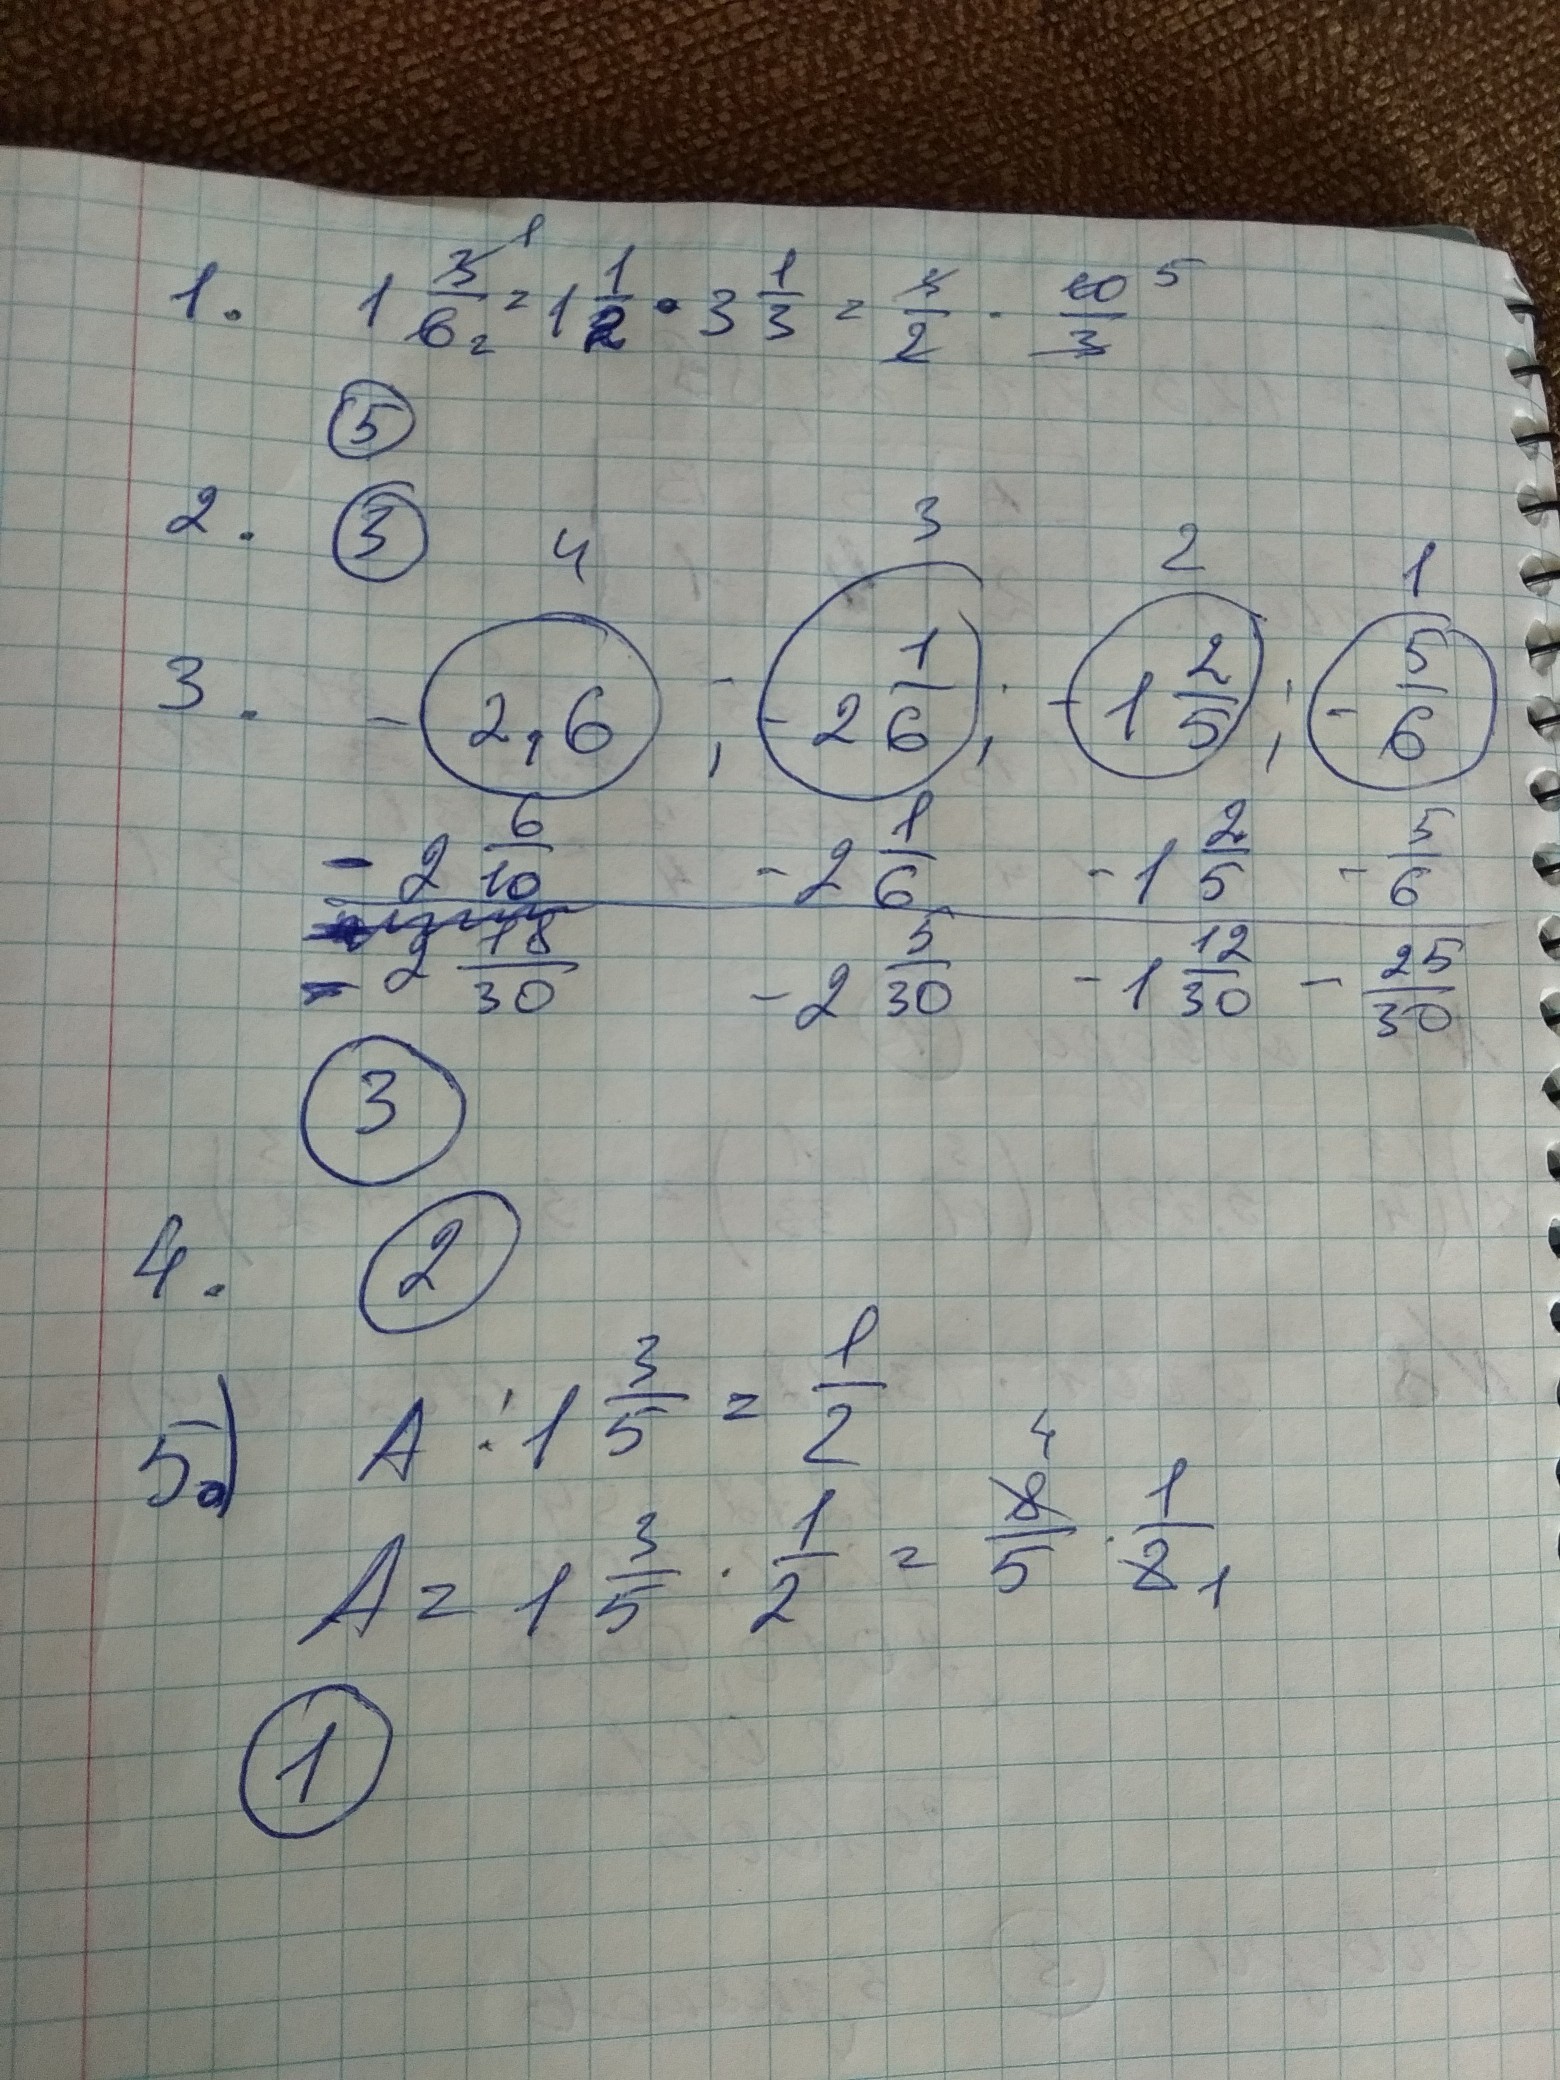 1. 1 3/6 1 2 = 1 1/2 • 3 1/3 = 3/2 · 10/3 5
5
2. 3
4 3 2 1
3. - 2,6 ; - 2 1/6 ; - 1 2/5 ; - 5/6
- 2 6/10 - 2 1/6 - 1 2/5 - 5/6
- 2 18/30 - 2 5/30 - 1 12/30 - 25/30
3
4. 2
5.) A : 1 3/5 = 1/2
A = 1 3/5 · 1/2 = 8/5 4 · 1/2 1
1